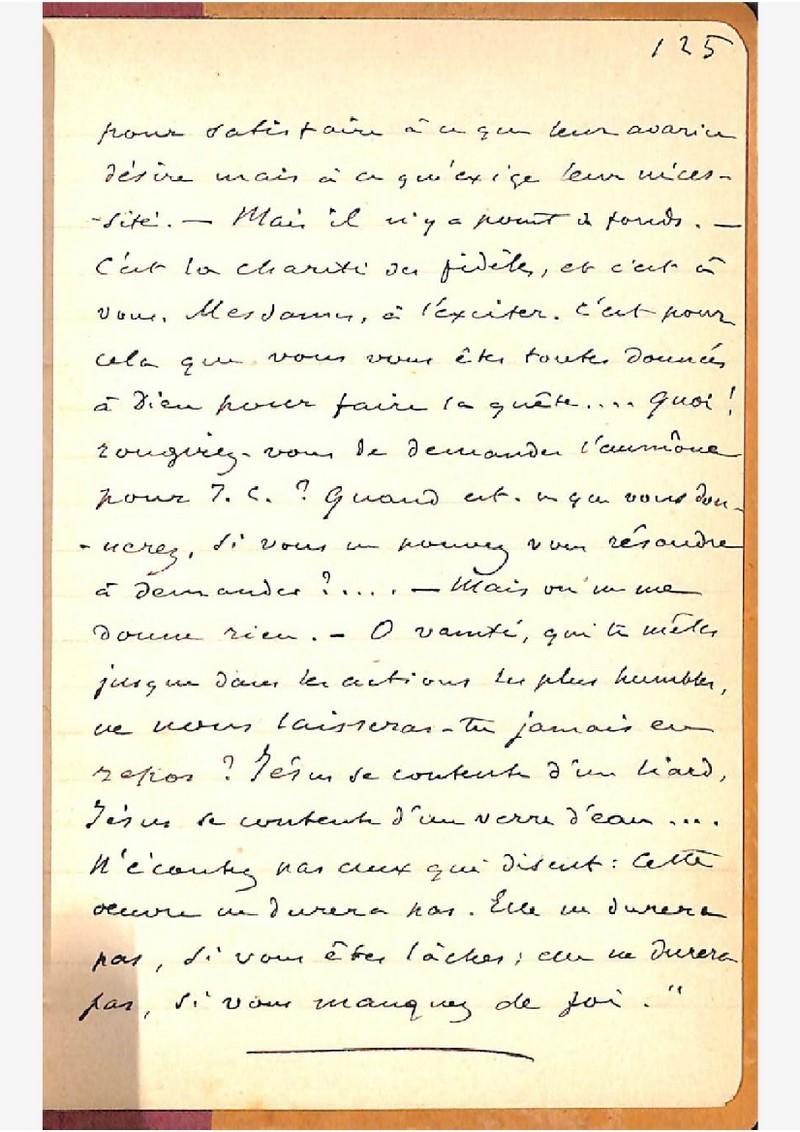 125
pour satisfaire à ce que leur avarice
désire mais à ce qu'exige leur néces-
-sité. — Mais il n'y a point de fonds. —
C'est la charité des fidèles, et c'est à
vous, Mesdames, à l'exciter. C'est pour
cela que vous vous êtes toutes données
à Dieu pour faire la quête.... Quoi !
rougirez-vous de demander l'aumône
pour J. C. ? Quand est-ce que vous don-
-nerez, si vous ne pouvez vous résoudre
à demander ?.... — Mais on ne me
donne rien. — O vanité, qui te mêles
jusque dans les actions les plus humbles,
ne nous laisseras-tu jamais en
repos ? Jésus se contente d'un liard,
Jésus se contente d'un verre d'eau ....
N'écoutez pas ceux qui disent : Cette
oeuvre ne durera pas. Elle ne durera
pas, si vous êtes lâches ; elle ne durera
pas, si vous manquez de foi. "